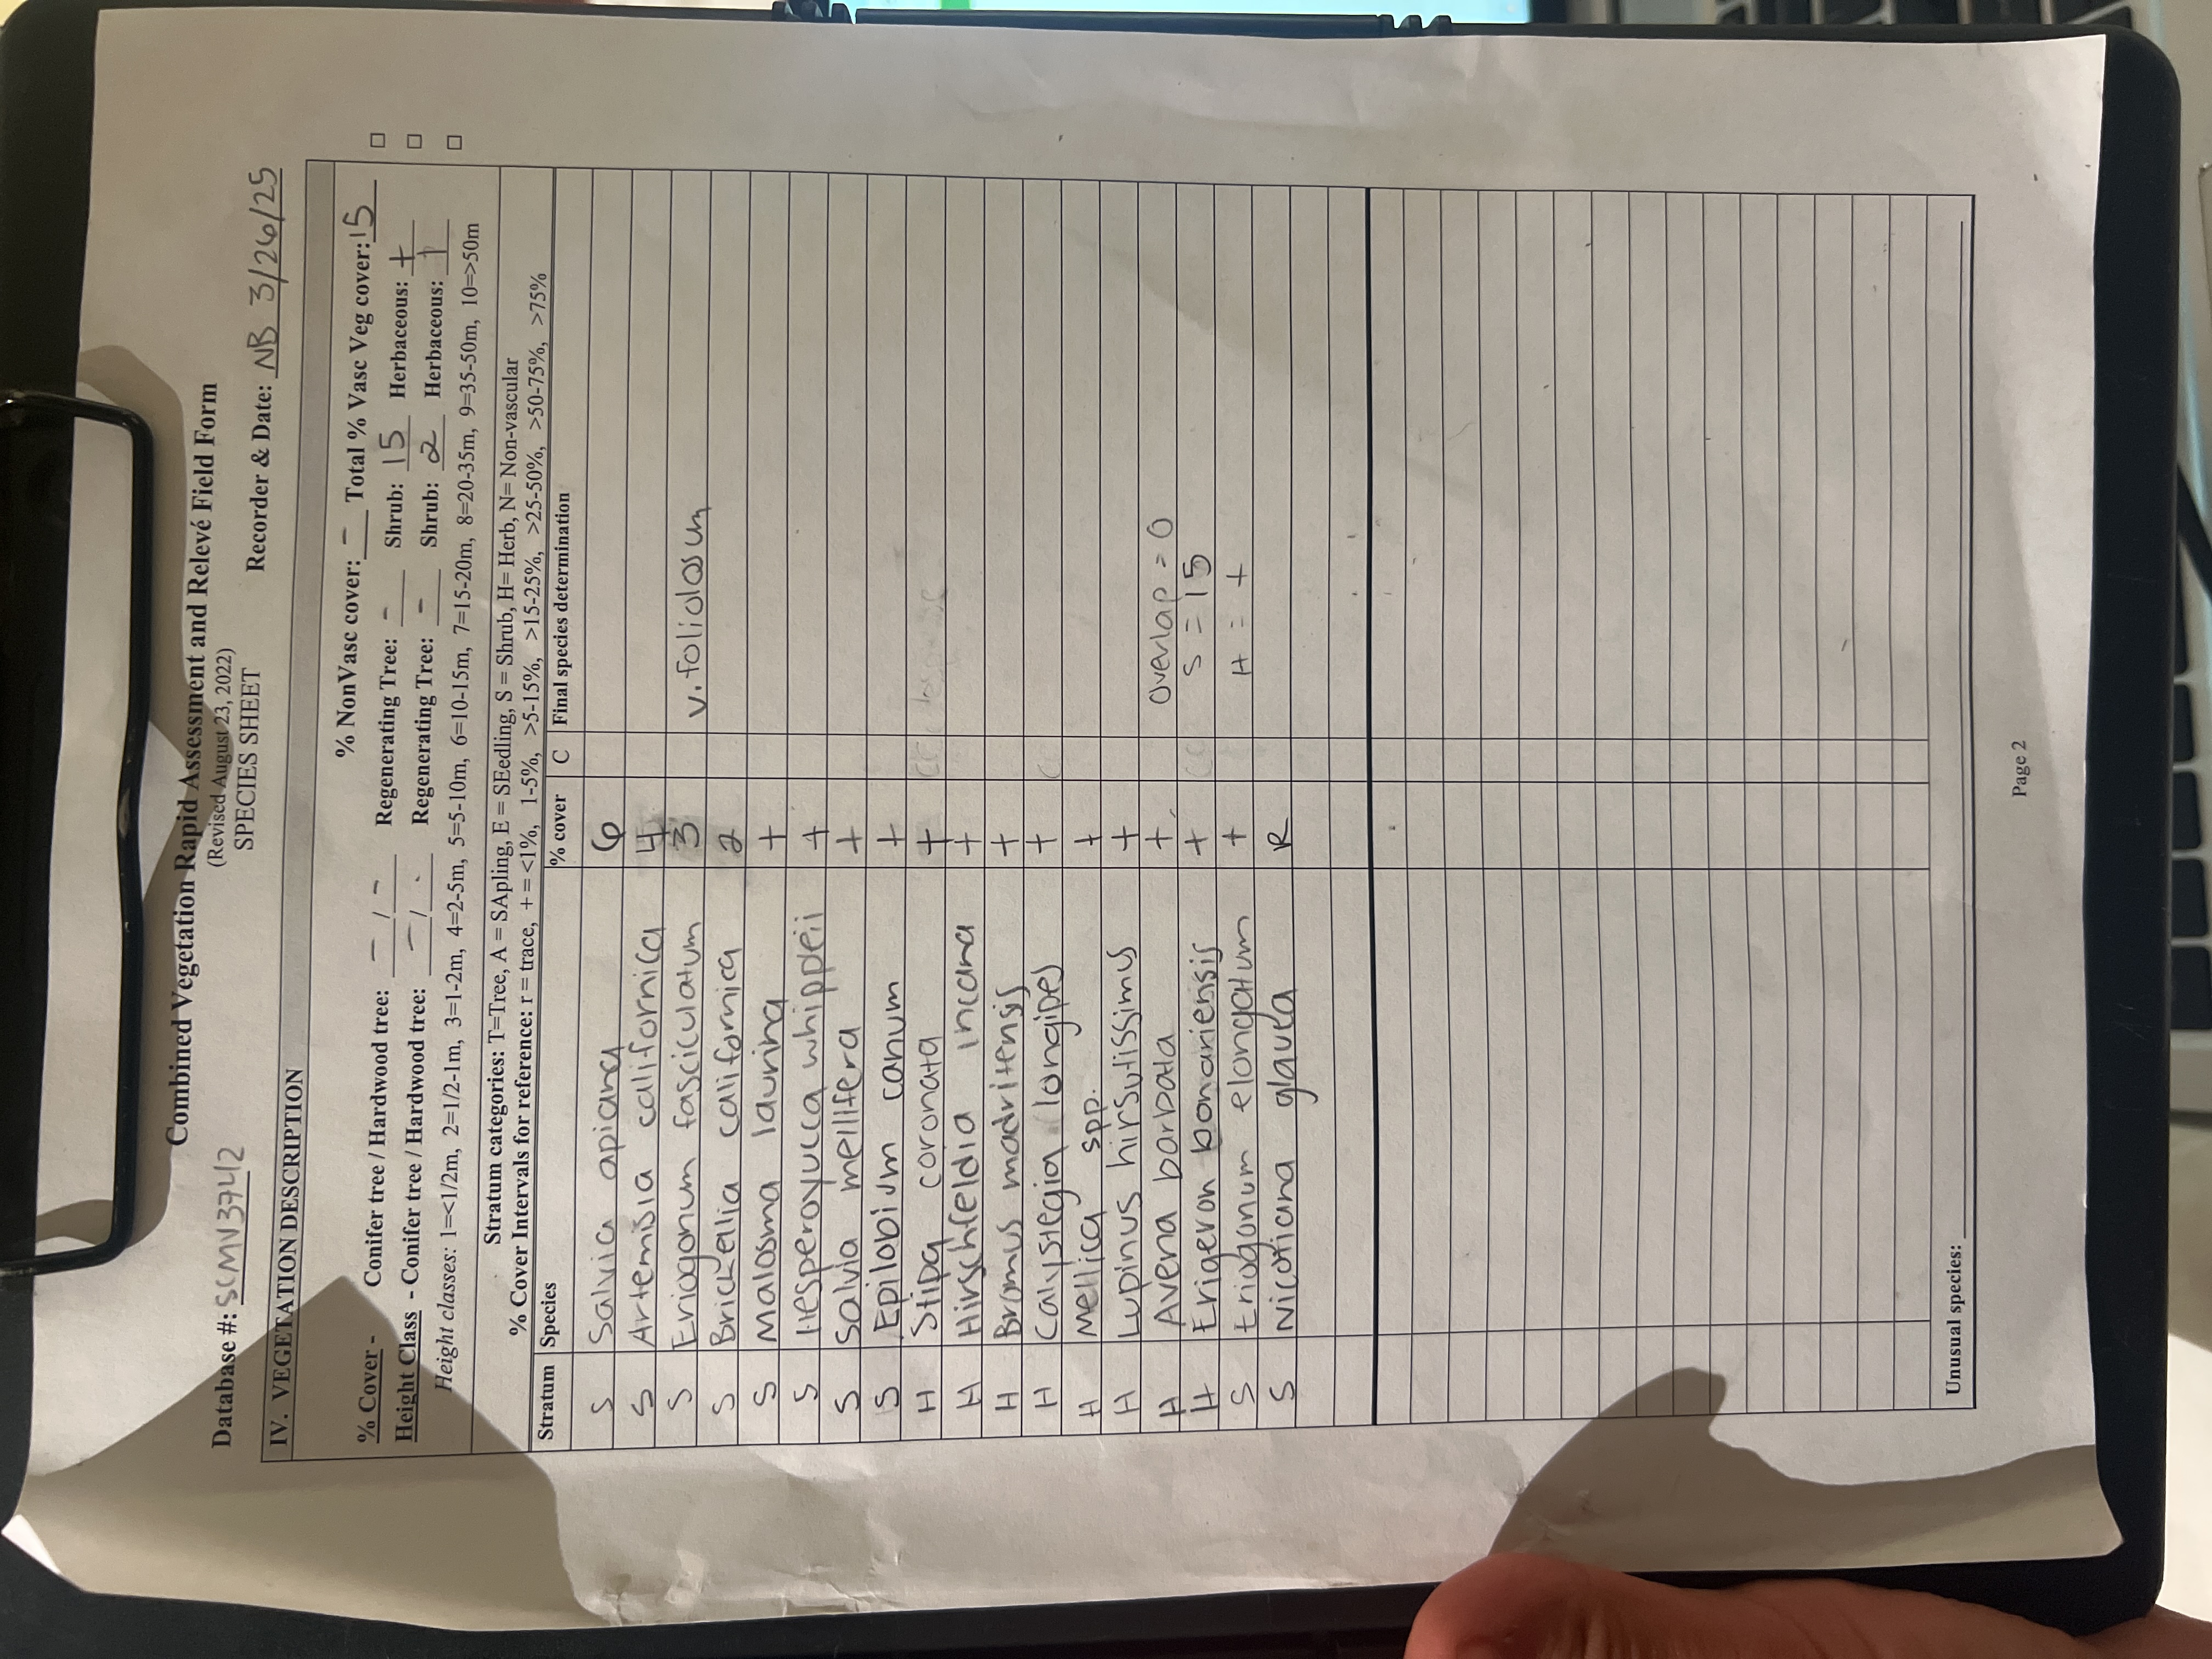 Combined Vegetation Rapid Assessment and Relevé Field Form
(Revised August 23, 2022)
SPECIES SHEET
Database #: SCMV3742 Recorder & Date: NB 3/26/25
IV. VEGETATION DESCRIPTION
% NonVasc cover: - Total % Vasc Veg cover: 15
% Cover - Conifer tree / Hardwood tree: - / - Regenerating Tree: - Shrub: 15 Herbaceous: + □
Height Class - Conifer tree / Hardwood tree: - / - Regenerating Tree: - Shrub: 2 Herbaceous: 1 □
Height classes: 1=<1/2m, 2=1/2-1m, 3=1-2m, 4=2-5m, 5=5-10m, 6=10-15m, 7=15-20m, 8=20-35m, 9=35-50m, 10=>50m □
Stratum categories: T=Tree, A = SApling, E = SEedling, S = Shrub, H= Herb, N= Non-vascular
% Cover Intervals for reference: r = trace, + = <1%, 1-5%, >5-15%, >15-25%, >25-50%, >50-75%, >75%
Stratum Species % cover C Final species determination
S Salvia apiana 6
S Artemisia californica 4
S Eriogonum fasciculatum 3 v. foliolosum
S Brickelia californica 2
S Malosma laurina +
S Hesperoyucca whipplei +
S Salvia mellifera +
S Epilobium canum +
H Stipa coronata +
H Hirschfeldia incana +
H Bromus madritensis +
H Calystegia longipes +
H Mellica spp. +
H Lupinus hirsutissimus +
H Avena barbata + Overlap = 0
H Erigeron bonariensis + S = 15
S Eriogonum elongatum + H = +
S Nicotiana glauca R
Unusual species:
Page 2